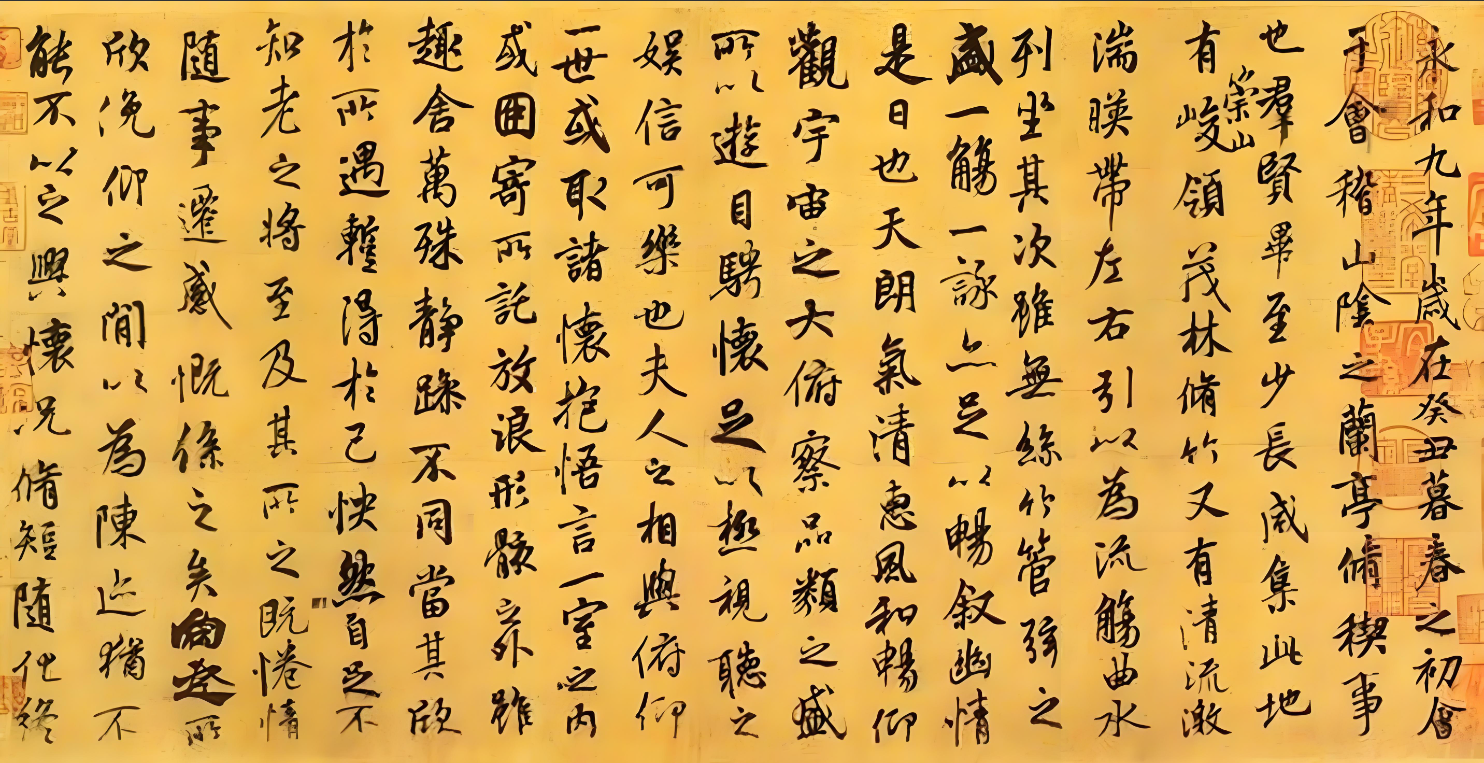 永和九年歲在癸丑暮春之初會
于會稽山陰之蘭亭脩稧事
也羣賢畢至少長咸集此地
有崇山峻領茂林脩竹又有清流激
湍暎帶左右引以為流觴曲水
列坐其次雖無絲竹管弦之
盛一觴一詠亦足以暢叙幽情
是日也天朗氣清惠風和暢仰
觀宇宙之大俯察品類之盛
所以遊目騁懷足以極視聽之
娛信可樂也夫人之相與俯仰
一世或取諸懷抱悟言一室之內
或因寄所託放浪形骸之外雖
趣舍萬殊靜躁不同當其欣
於所遇蹔得於己怏然自足不
知老之將至及其所之既惓情
隨事遷感慨係之矣向之所
欣俛仰之閒以為陳迹猶不
能不以之興懷況脩短隨化終